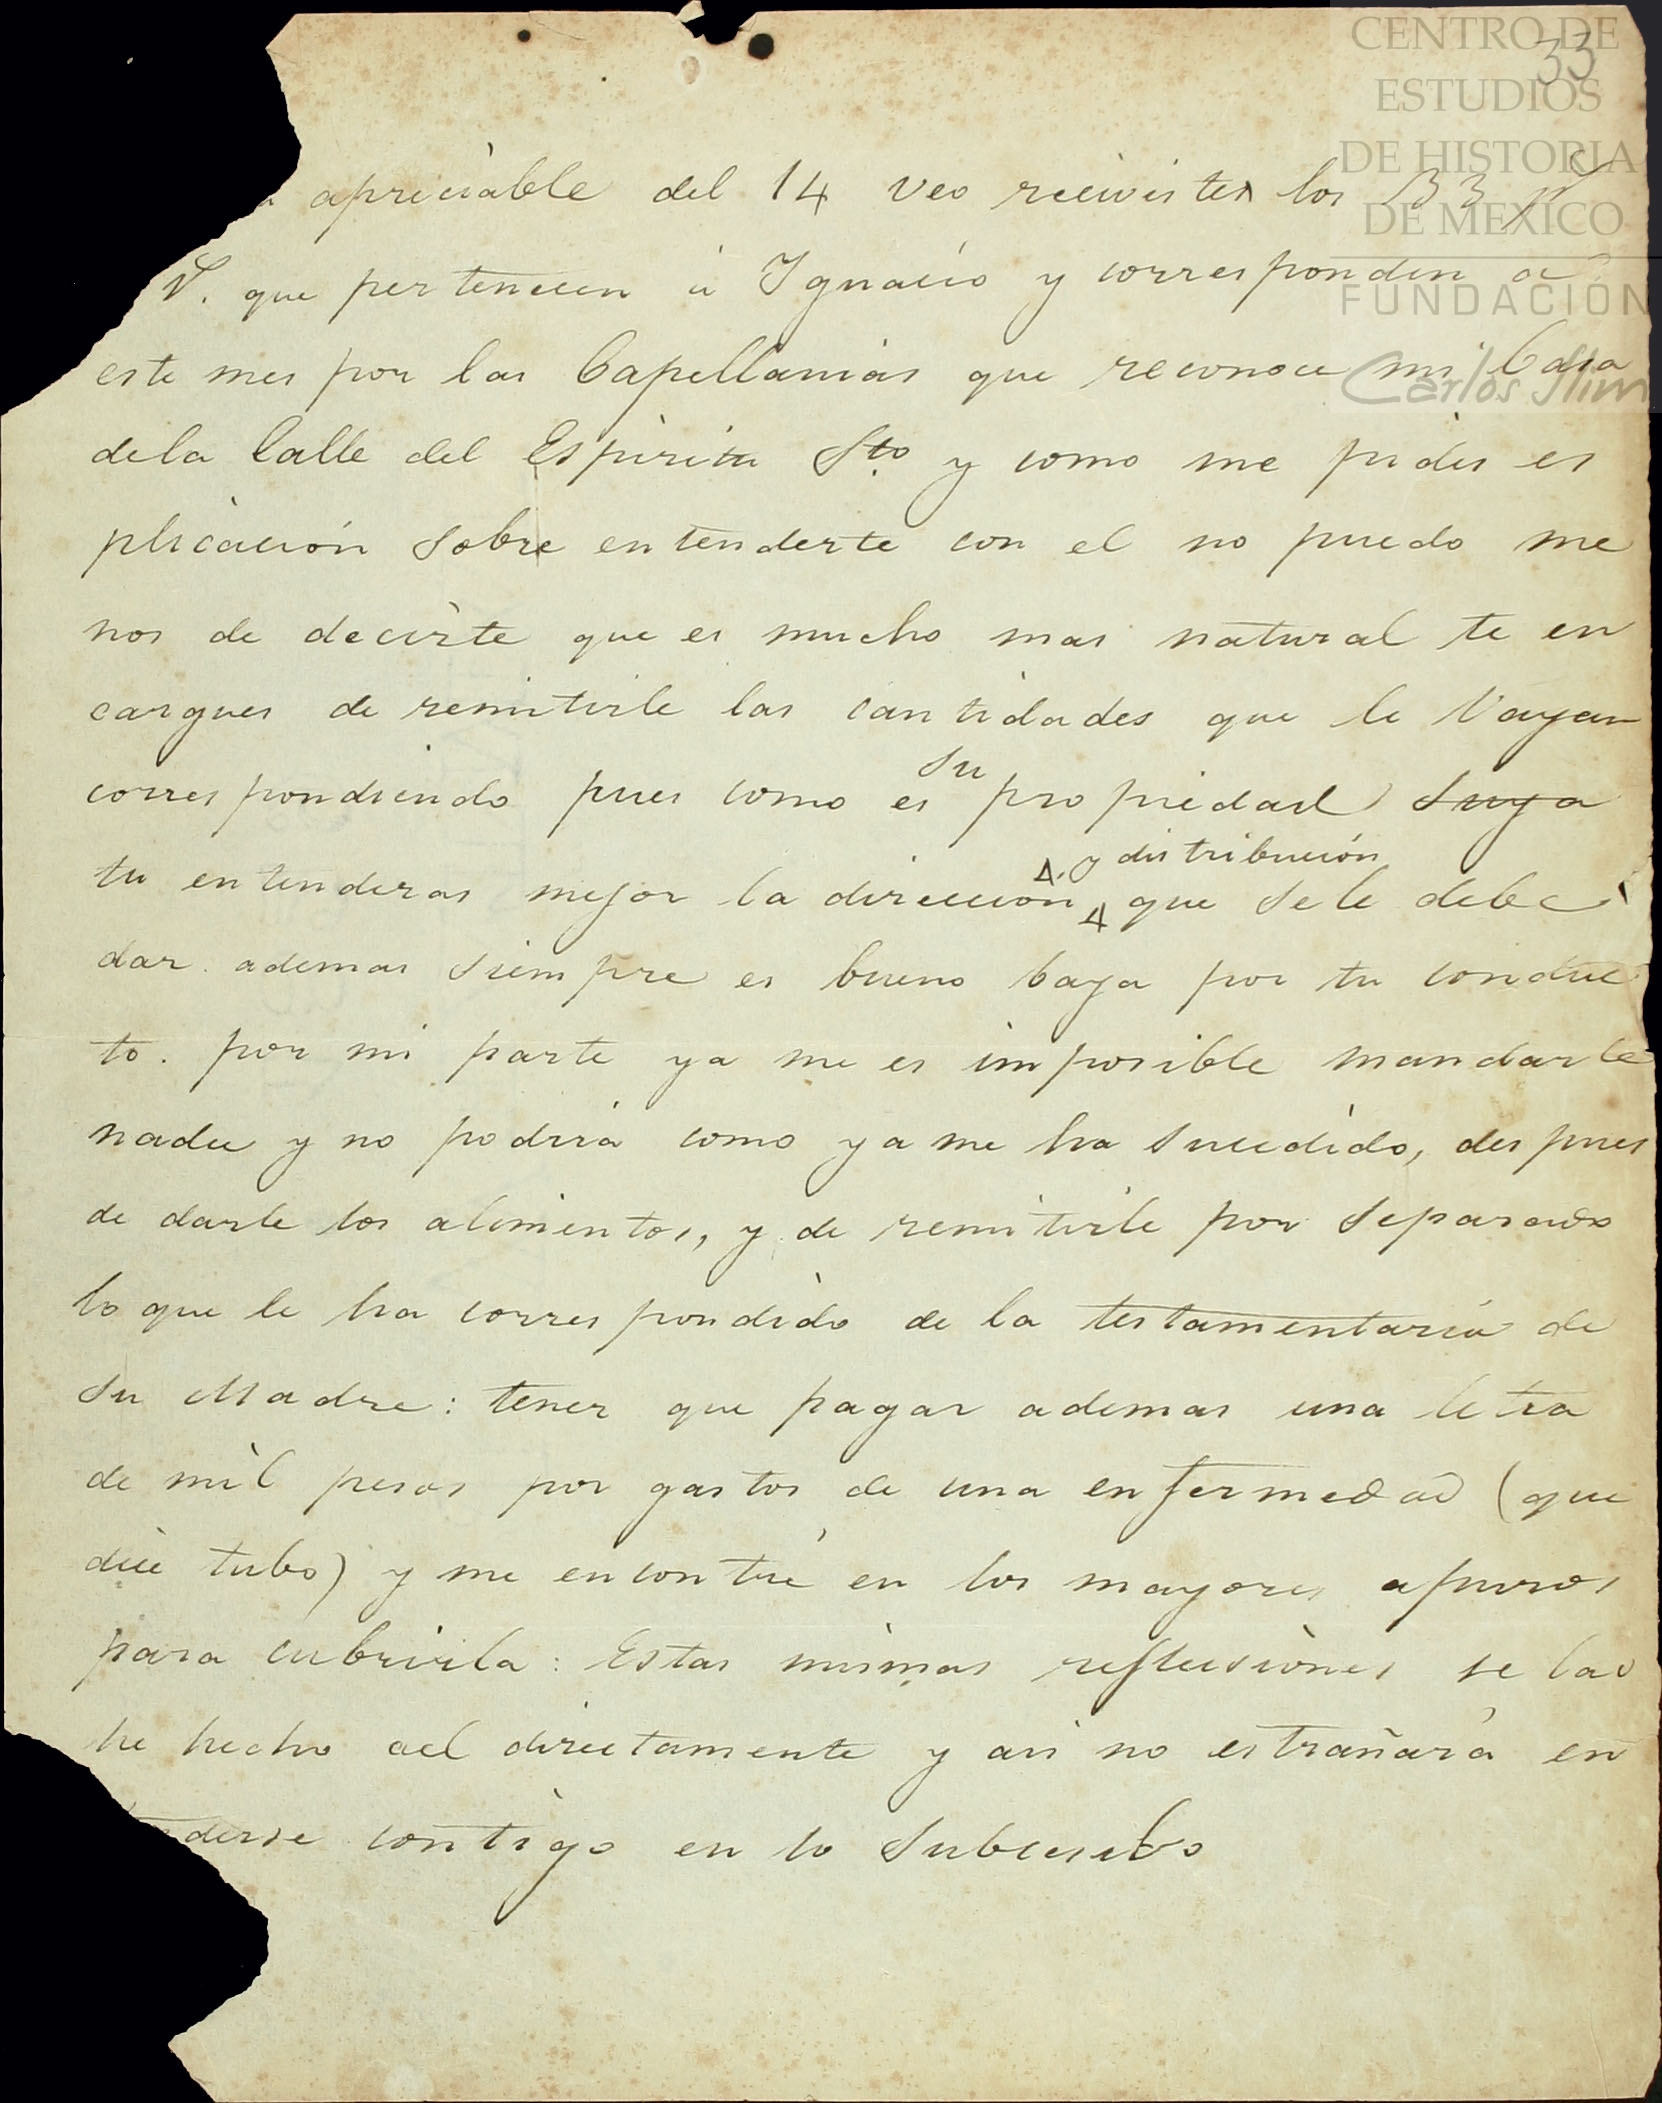 CENTRO DE
ESTUDIOS
DE HISTORIA
DE MEXICO
FUNDACIÓN
Carlos Slim
33
apreciable del 14 veo recivistes los
que pertenecen á Ignacio y corresponden a
este mes por las Capellanias que reconoce mi Casa
dela Calle del Espiritu Sto y como me pides es
plicación sobre entenderte con el no puedo me
nos de decirte que es mucho mas natural te en
cargues de remitirle las cantidades que le Vayan
correspondiendo pues como es su propiedad suya
tu entenderas mejor la direccion y distribución que sele debe
dar. ademas siempre es bueno baya por tu conduc
to. por mi parte ya me es imposible mandarle
nada y no podria como ya me ha sucedido, des pues
de darle los alimentos, y de remitirle por separado
lo que le ha correspondido de la testamentaria de
su Madre: tener que pagar ademas una letra
de mil pesos por gastos de una enfermedad (que
dice tubo) y me encontré en los mayores apuros
para cubrirla: Estas mismas reflecsiones se las
he hecho ael directamente y asi no estrañará en
derse contigo en lo subcesibo